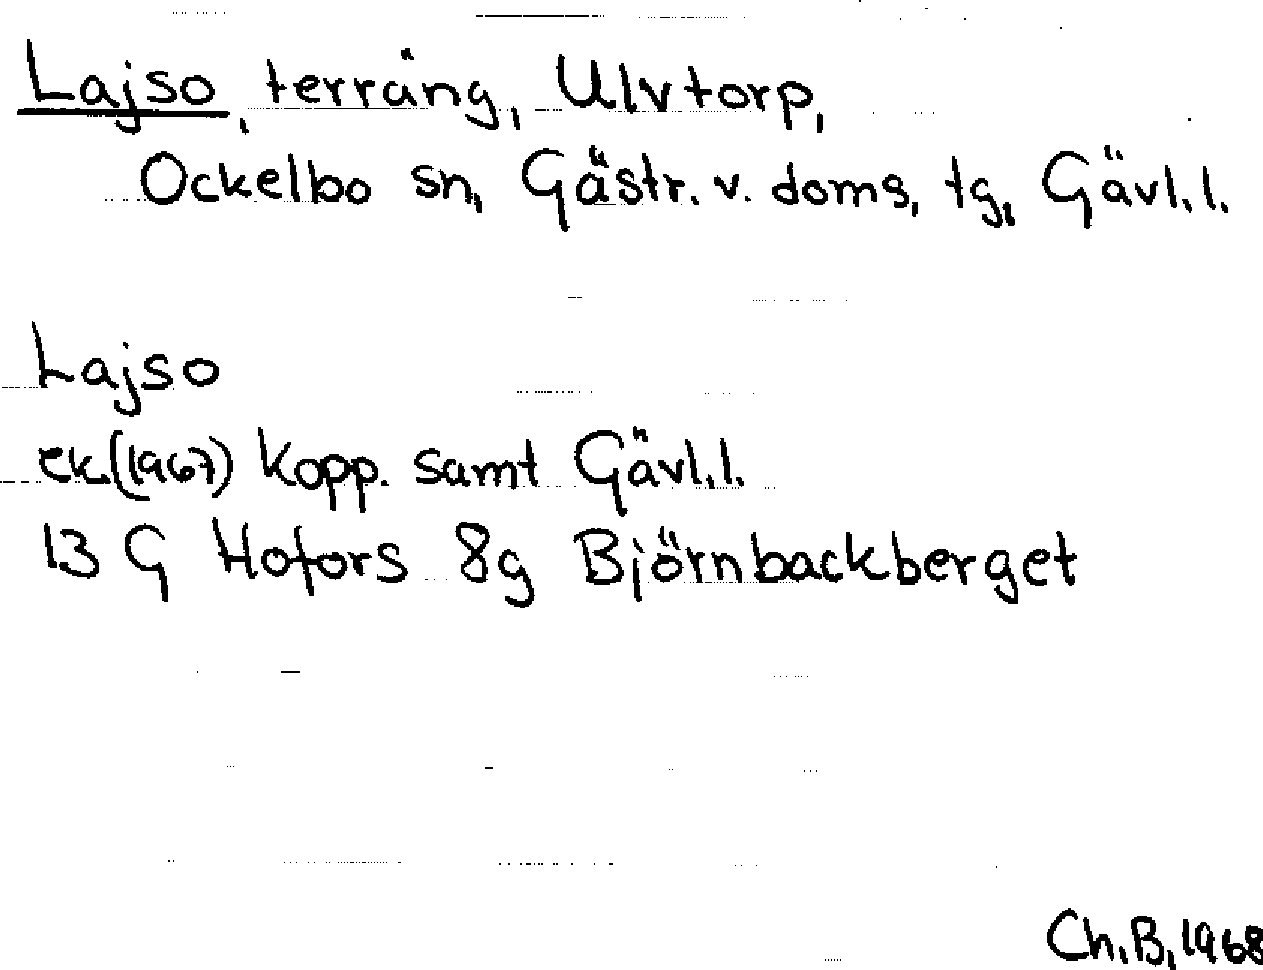 Lajso, terräng, Ulvtorp,
Ockelbo sn, Gästr. v. doms, tg, Gävl.l.
Lajso
ek.(1967) Kopp. samt Gävl.l.
13 G Hofors 8g Björnbackberget
Ch.B.1968